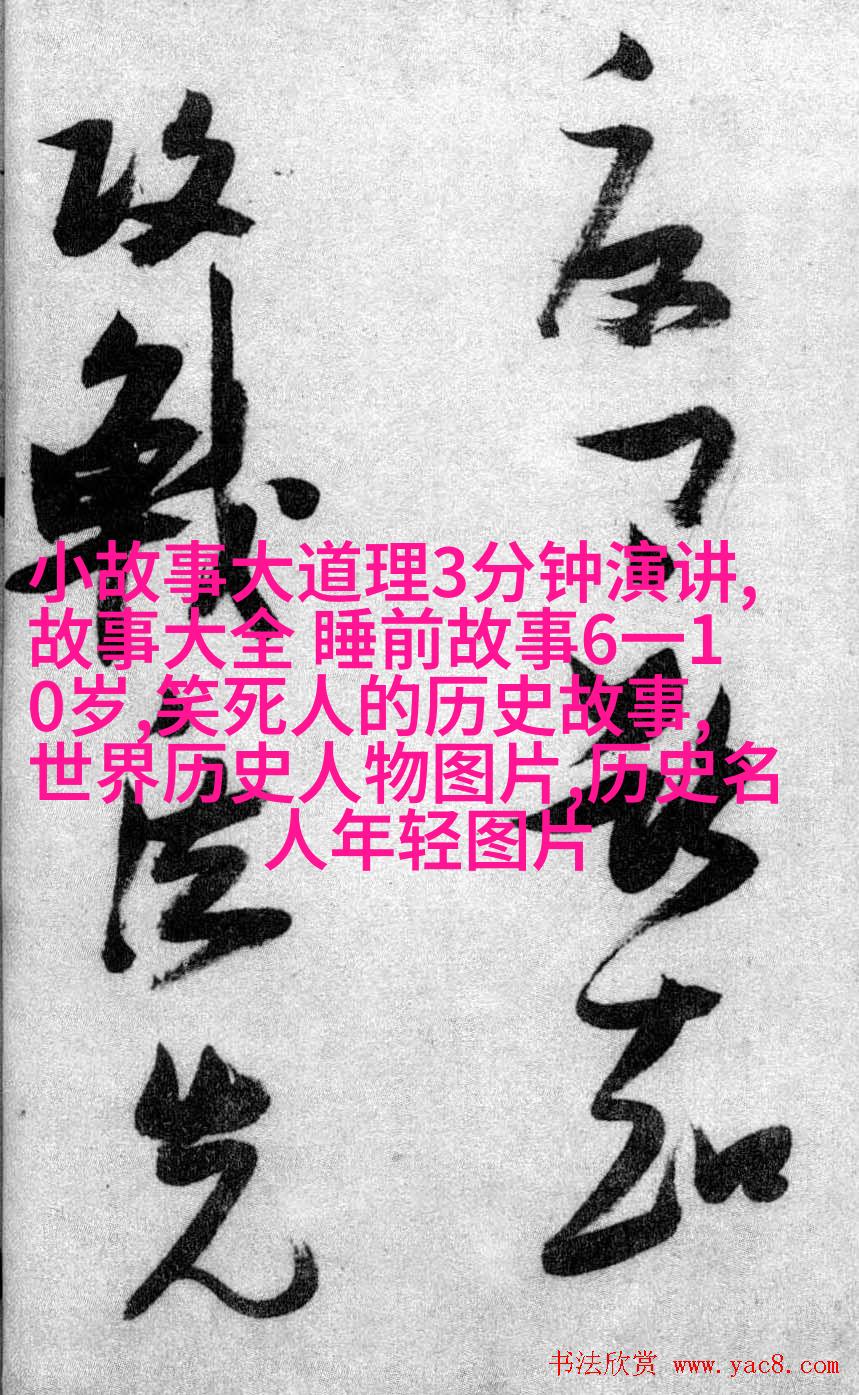 攻戰之法先
小故事大道理3分钟演讲,
故事大全 睡前故事6一1
0岁,笑死人的历史故事,
世界历史人物图片,历史名
人年轻图片
书法欣赏 www.yac8.com